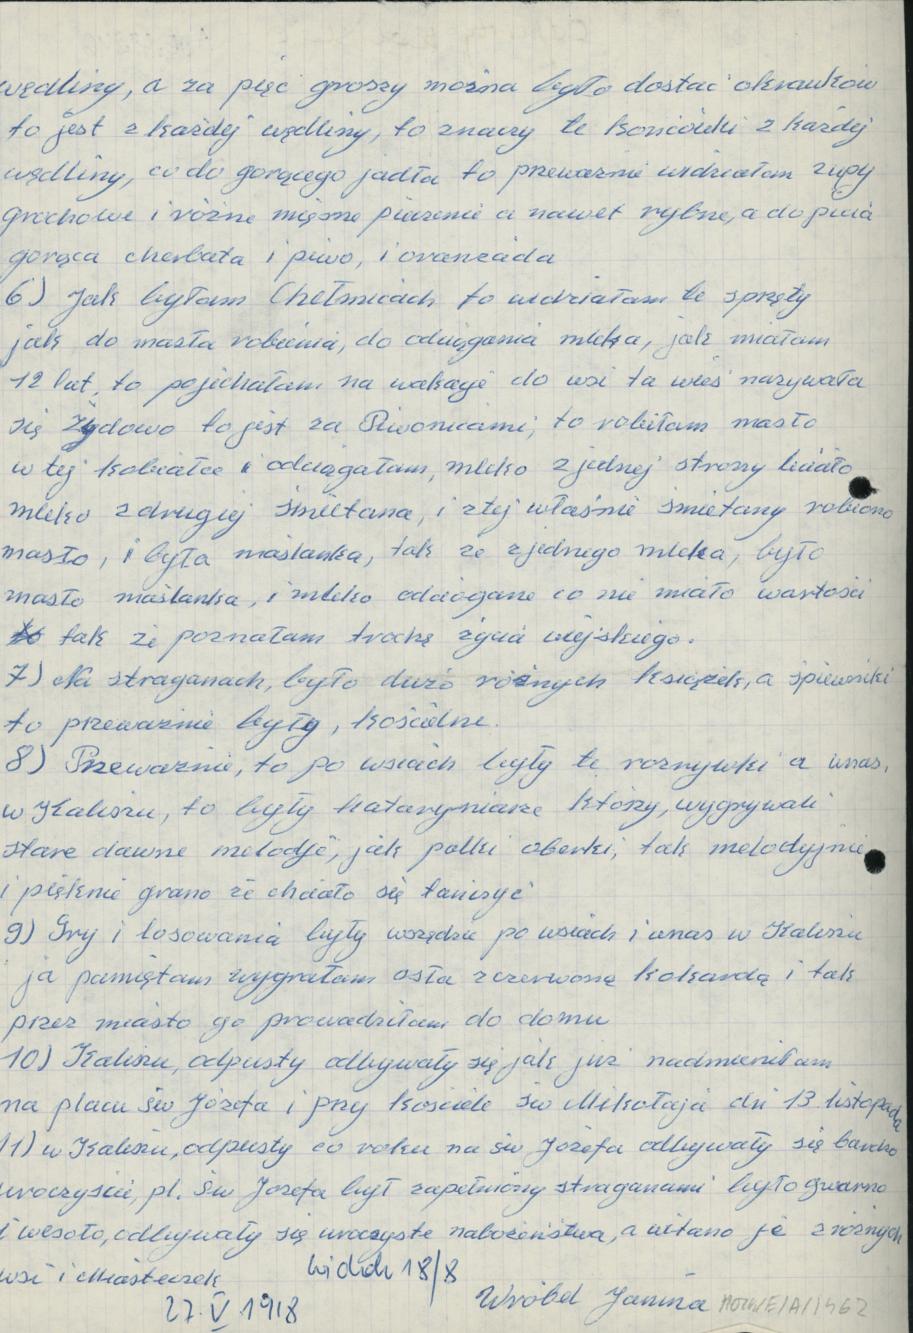 wędliny, a za pięć groszy można było dostać okrawków
to jest z każdej wędliny, to znaczy te końcówki z każdej
wędliny, co do gorącego jadła to przeważnie widziałam zupy
grochowe i różne mięsne pieczenie a nawet rybne, a do picia
gorąca cherbata i piwo, i oranżada
6) Jak byłam Chełmicach to widziałam te sprzęty
jak do masła robienia, do odciągania mleka, jak miałam
12 lat, to pojechałam na wakacje do wsi ta wieś nazywała
się Żydowo to jest za Piwonicami, to robiłam masło
w tej kobiałce i odciągałam, mleko z jednej strony leciało
mleko z drugiej śmietana, i z tej właśnie śmietany robiono
masło, i była maślanka, tak że z jednego mleka, było
masło maślanka, i mleko odciągane co nie miało wartości
tak że poznałam trochę życia wiejskiego.
7) Na straganach, było dużo różnych książek, a śpiewniki
to przeważnie były, kościelne.
8) Przeważnie, to po wsiach były te rozrywki a unas,
w Kaliszu, to były kataryniarze którzy, wygrywali
stare dawne melodje, jak polki oberki, tak melodyjnie
i pięknie grano że chciało się tańczyć
9) Gry i losowania były wszędzie po wsiach i unas w Kaliszu
ja pamiętam wygrałam osła z czerwoną kokardą i tak
przez miasto go prowadziłam do domu
10) Kaliszu, odpusty odbywały się jak już nadmieniłam
na placu św Józefa i przy kościele św Mikołaja dn 13 listopada
11) w Kaliszu, odpusty co roku na św Józefa odbywały się bardzo
uroczyście, pl. św Józefa był zapełniony straganami było gwarno
i wesoło, odbywały się uroczyste nabożeństwa, a witano je z różnych
wsi i Miasteczek
18/8
27. V 1918 Wróbel Janina